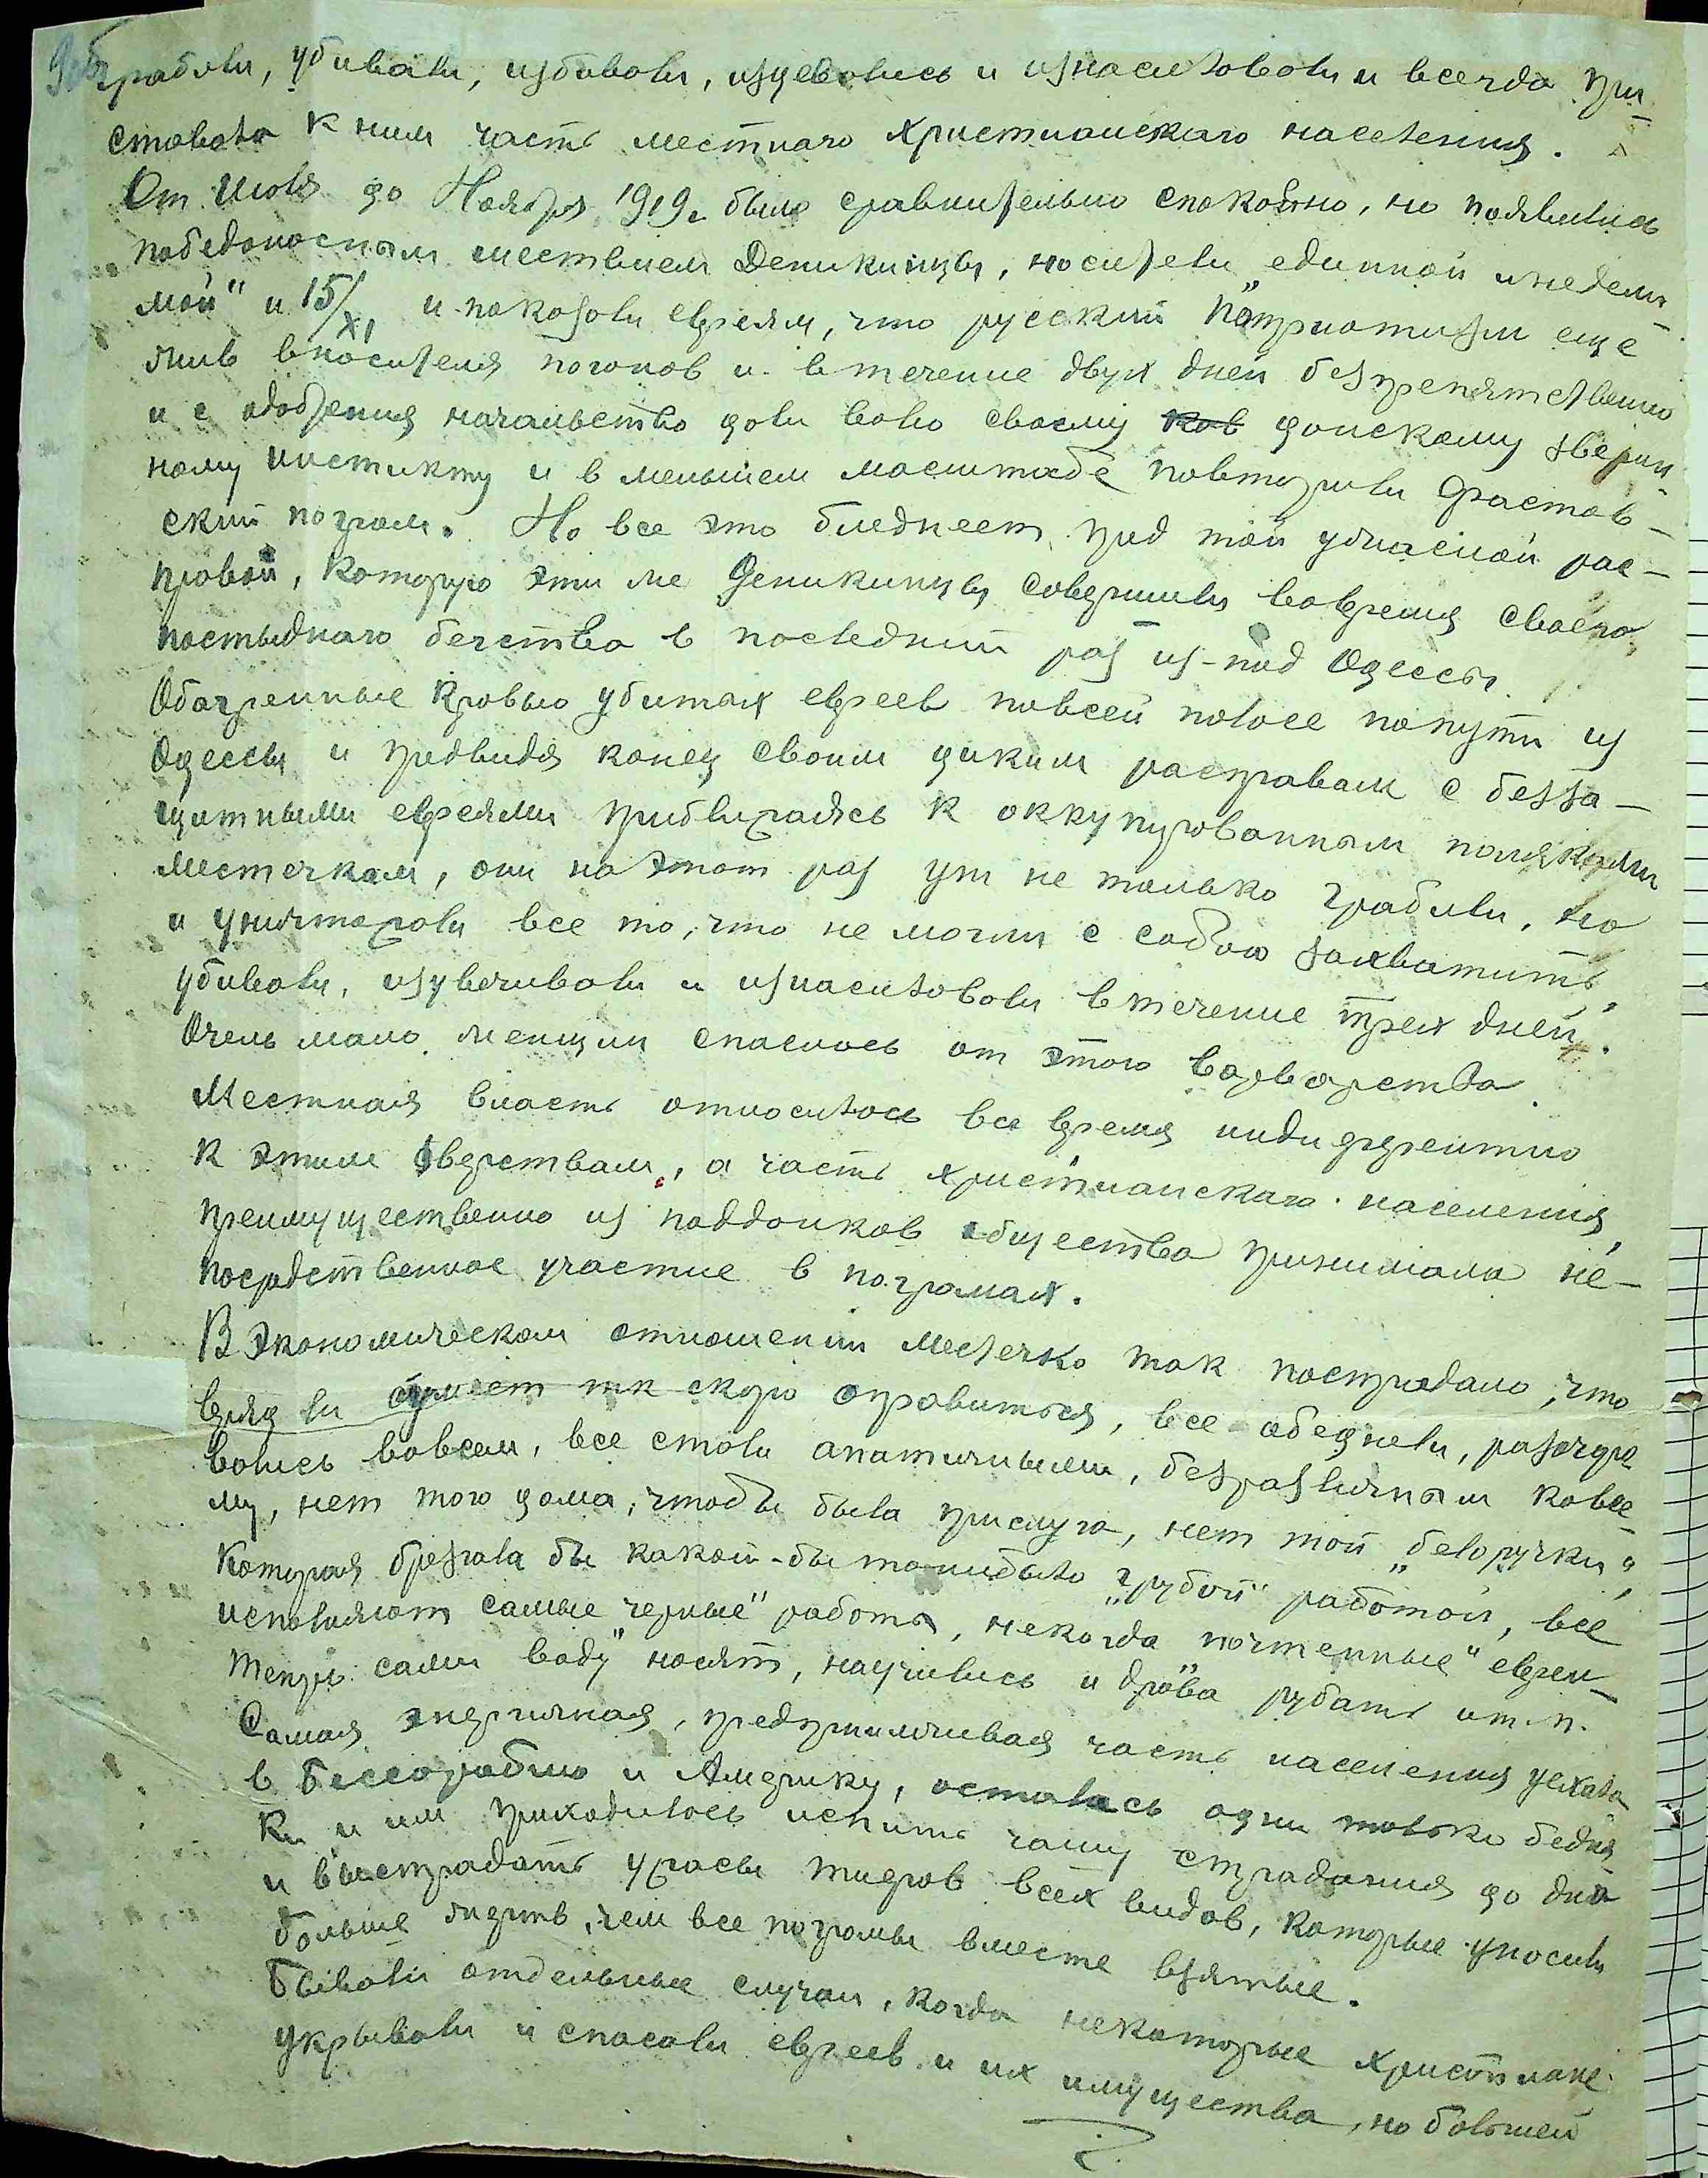 грабили, убивали, избивали, издевались и изнасиловали и всегда при-
ставала к ним часть местнаго христианскаго населения.
От Июля до Ноября 1919 г. было сравнительно спокойно, но появились
победоносным шествием Деникинцы, носители „единной и недели-
мой" и 15/XI и показали евреям, что русский патриотизм еще
жив в носителя погонов и в течение двух дней безпрепятственно
и с одобрения начальства дали волю своему донскому зверин-
ному инстикту и в меньшем масштабе повторили фастов-
ский погром. Но все это бледнеет пред той ужасной рас-
правой, которую эти же Деникинцы совершили вовремя своего
постыднаго бегства в последний раз из-под Одессы.
Обагренные кровью убитых евреев повсей полосе попути из
Одессы и предвидя конец своим диким расправам с безза-
щитными евреями приближаясь к оккупированным поляками
местечкам, они на этот раз уж не только грабили, но
и уничтожали все то, что не могли с собою захватить,
убивали, изувечивали и изнасиловали в течение трех дней.
Очень мало женщин спаслось от этого варварства.
Местная власть относилось все время индифферентно
к этим зверствам, а часть христианскаго населения,
преимущественно из паддонков общества принимала не-
посредственное участие в погромах.
В экономическом отношении местечко так пострадало, что
вряд ли сумеет так скоро оправиться, все обеднели, разочаро-
вались вовсем, все стали апатичными, безразличным ковсе-
му, нет того дома, чтобы была прислуга, нет той „белоручки",
которая брезгала бы какой-бы тонибыло „грубой" работой, все
исполняют самые „черные" работы, некогда „почтенные" евреи
теперь сами воду носят, научились и дрова рубать и т. п.
Самая энергичная, предприимчивая часть населения уехала
в Бессарабию и Америку, остались одни только бедня-
ки и им приходилось испить чашу страдания до дна
и выстрадать ужасы тифов всех видов, которые уносили
больше жертв, чем все погромы вместе взятые.
Бывали отдельные случаи, когда некоторые христиане
укрывали и спасали евреев и их имущества, но большей